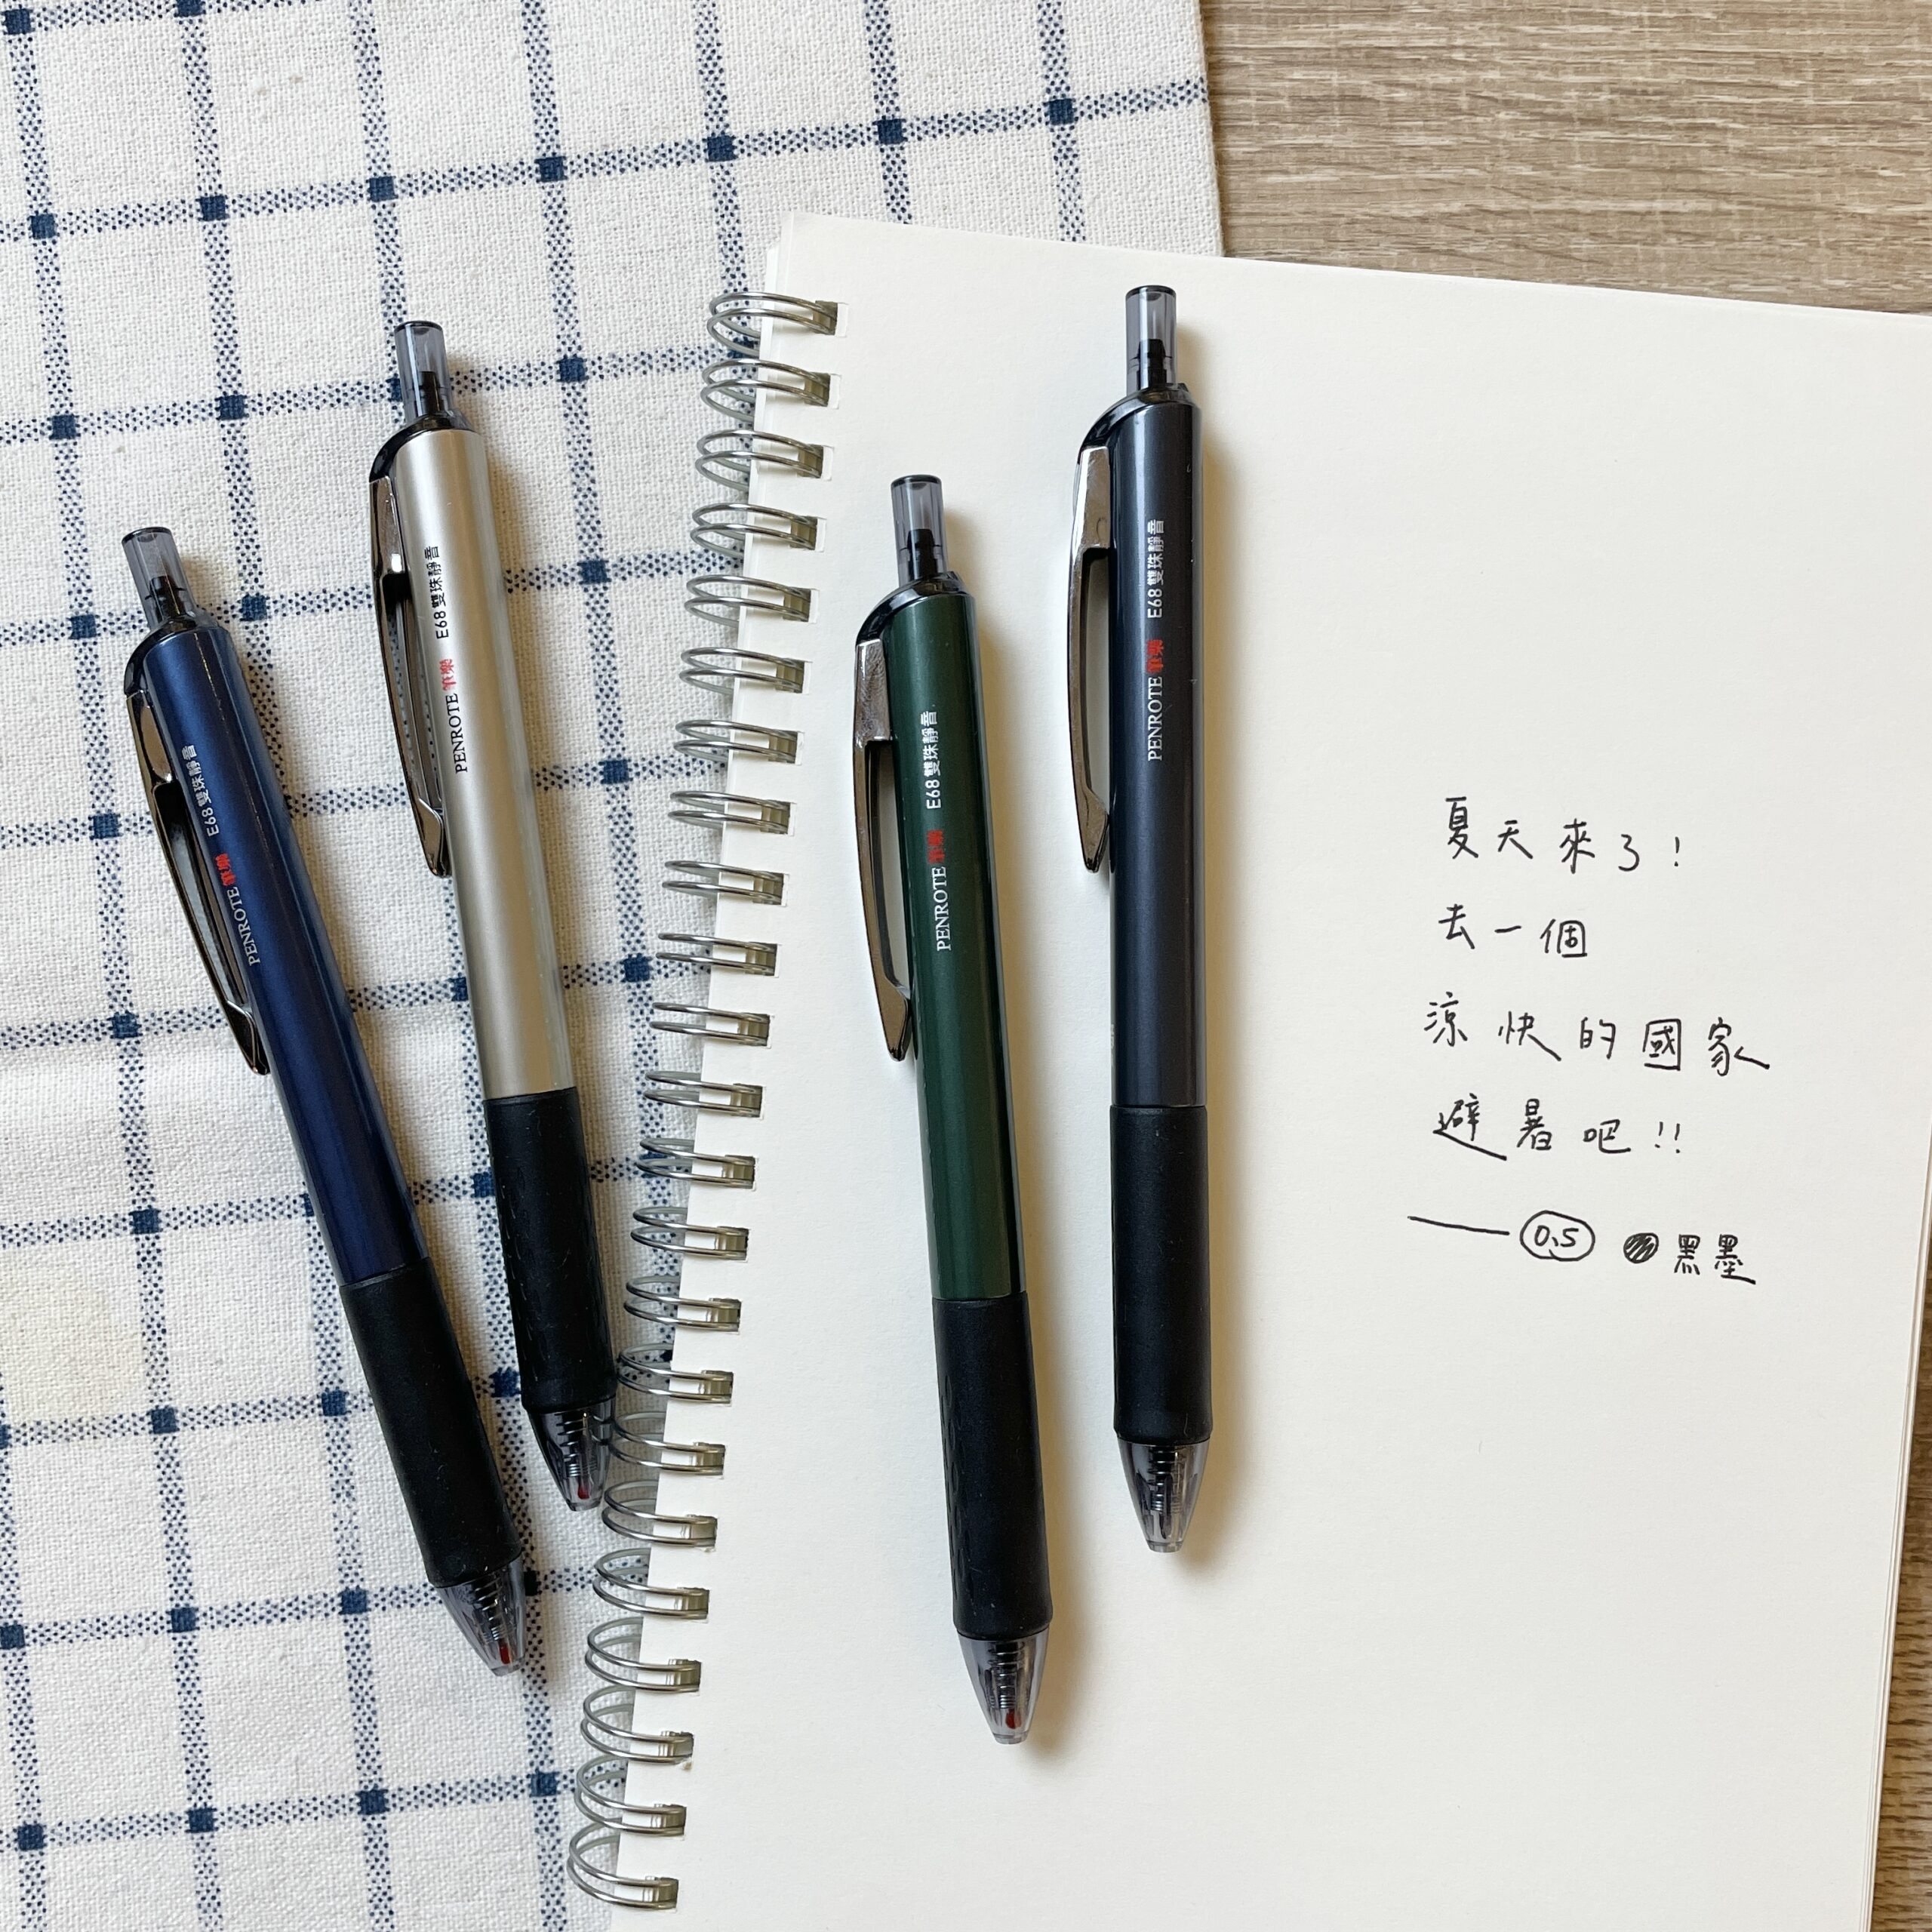 PENROTE筆樂 E68 雙珠靜音
PENROTE筆樂 E68 雙珠靜音
PENROTE筆樂 E68 雙珠靜音
PENROTE筆樂 E68 雙珠靜音
夏天來了!
去一個
涼快的國家
避暑吧!!
0.5 黑墨